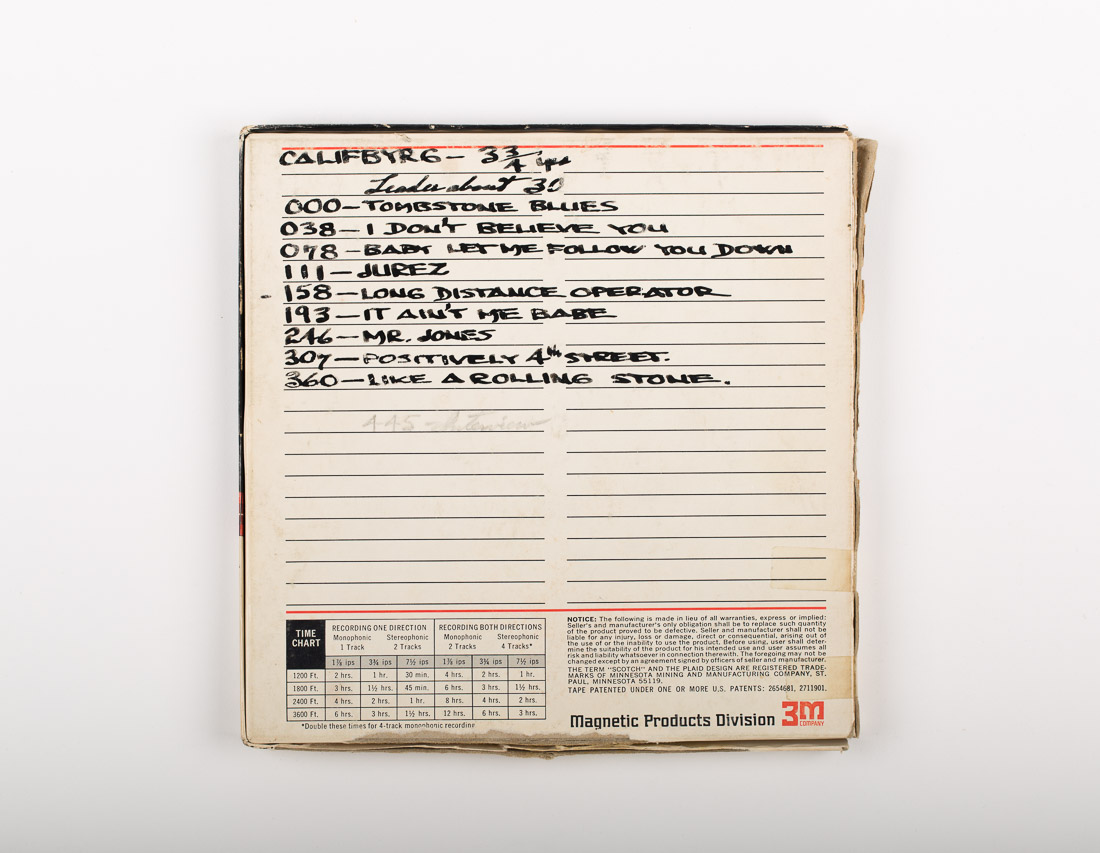 CALIFBYRG - 33/4 ips
Leader about 30
000 - TOMBSTONE BLUES
038 - I DON'T BELIEVE YOU
078 - BABY LET ME FOLLOW YOU DOWN
111 - JUREZ
158 - LONG DISTANCE OPERATOR
193 - IT AIN'T ME BABE
246 - MR. JONES
307 - POSITIVELY 4th STREET.
360 - LIKE A ROLLING STONE.
445 - Interview
TIME CHART
RECORDING ONE DIRECTION RECORDING BOTH DIRECTIONS
Monophonic Stereophonic Monophonic Stereophonic
1 Track 2 Tracks 2 Tracks 4 Tracks*
1⅞ ips 3¾ ips 7½ ips 1⅞ ips 3¾ ips 7½ ips
1200 Ft. 2 hrs. 1 hr. 30 min. 4 hrs. 2 hrs. 1 hr.
1800 Ft. 3 hrs. 1½ hrs. 45 min. 6 hrs. 3 hrs. 1½ hrs.
2400 Ft. 4 hrs. 2 hrs. 1 hr. 8 hrs. 4 hrs. 2 hrs.
3600 Ft. 6 hrs. 3 hrs. 1½ hrs. 12 hrs. 6 hrs. 3 hrs.
*Double these times for 4-track monophonic recording
NOTICE: The following is made in lieu of all warranties, express or implied:
Seller's and manufacturer's only obligation shall be to replace such quantity
of the product proved to be defective. Seller and manufacturer shall not be
liable for any injury, loss or damage, direct or consequential, arising out of
the use of or the inability to use the product. Before using, user shall deter-
mine the suitability of the product for his intended use and user assumes all
risk and liability whatsoever in connection therewith. The foregoing may not be
changed except by an agreement signed by officers of seller and manufacturer.
THE TERM "SCOTCH" AND THE PLAID DESIGN ARE REGISTERED TRADE-
MARKS OF MINNESOTA MINING AND MANUFACTURING COMPANY, ST.
PAUL, MINNESOTA 55119.
TAPE PATENTED UNDER ONE OR MORE U.S. PATENTS: 2654681, 2711901.
Magnetic Products Division 3M
COMPANY